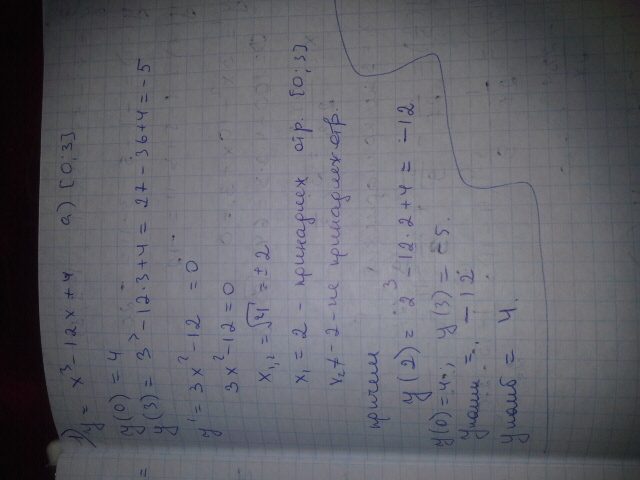 1) y = x³ - 12x + 4 а) [0;3]
y(0) = 4
y(3) = 3³ - 12·3 + 4 = 27 - 36 + 4 = -5
y' = 3x² - 12 = 0
3x² - 12 = 0
x₁,₂ = √4 = ± 2
x₁ = 2 - принадлеж отр. [0;3]
x₂ = - 2 - не принадлеж отр.
причем
y(2) = 2³ - 12·2 + 4 = -12
y(0) = 4, y(3) = -5.
yнаим = -12
yнаиб = 4.